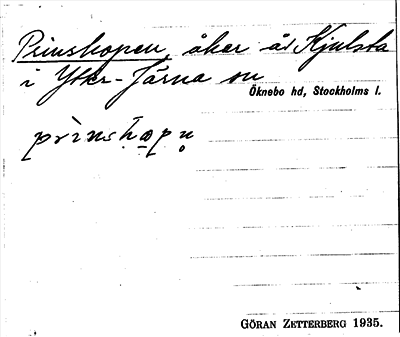 Prinshopen, åker åt Hjulsta
i Ytter-Järna sn
Öknebo hd, Stockholms l.
prinshɷpn̥
GÖRAN ZETTERBERG 1935.